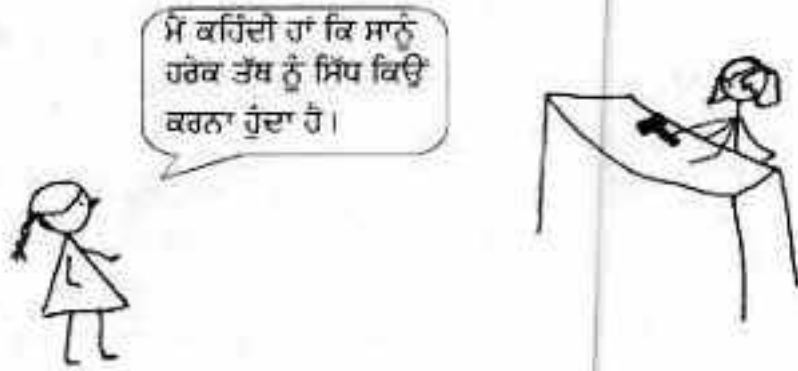 ਮੈਂ ਕਹਿੰਦੀ ਹਾਂ ਕਿ ਸਾਨੂੰ
ਹਰੇਕ ਤੱਥ ਨੂੰ ਸਿੱਧ ਕਿਉਂ
ਕਰਨਾ ਹੁੰਦਾ ਹੈ।